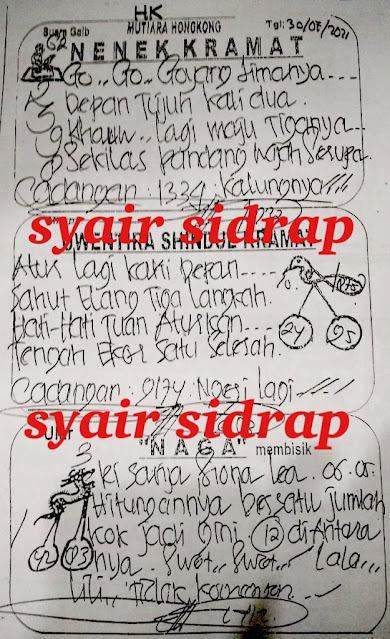 HK
Suara Gaib MUTIARA HONGKONG Tgl: 30/07/2021
NENEK KRAMAT
Go.. Go.. Goyang limanya ---
Depan Tujuh kali dua.
Khaum.. lagi maju Tiganya --
Sekilas pandang wajah Serupa.
Cadangan : 1334. Kalungnya
syair sidrap
UWENTIRA SHINDUE KRAMAT
Atuk lagi kaki depan ----
Sahut Elang Tiga Langkah.
Hati-Hati Tuan Aturkan ----
Tengah Ekor Satu Selesah.
24 95
Cadangan : 9174 Ngeri lagi
syair sidrap
"NAGA" membisik
Hitungannya bersatu jumlah
cok jadi gini. 12 di Antara
nya. Swot.. Swot.. Lala...
Lili,, Tidak
42 03